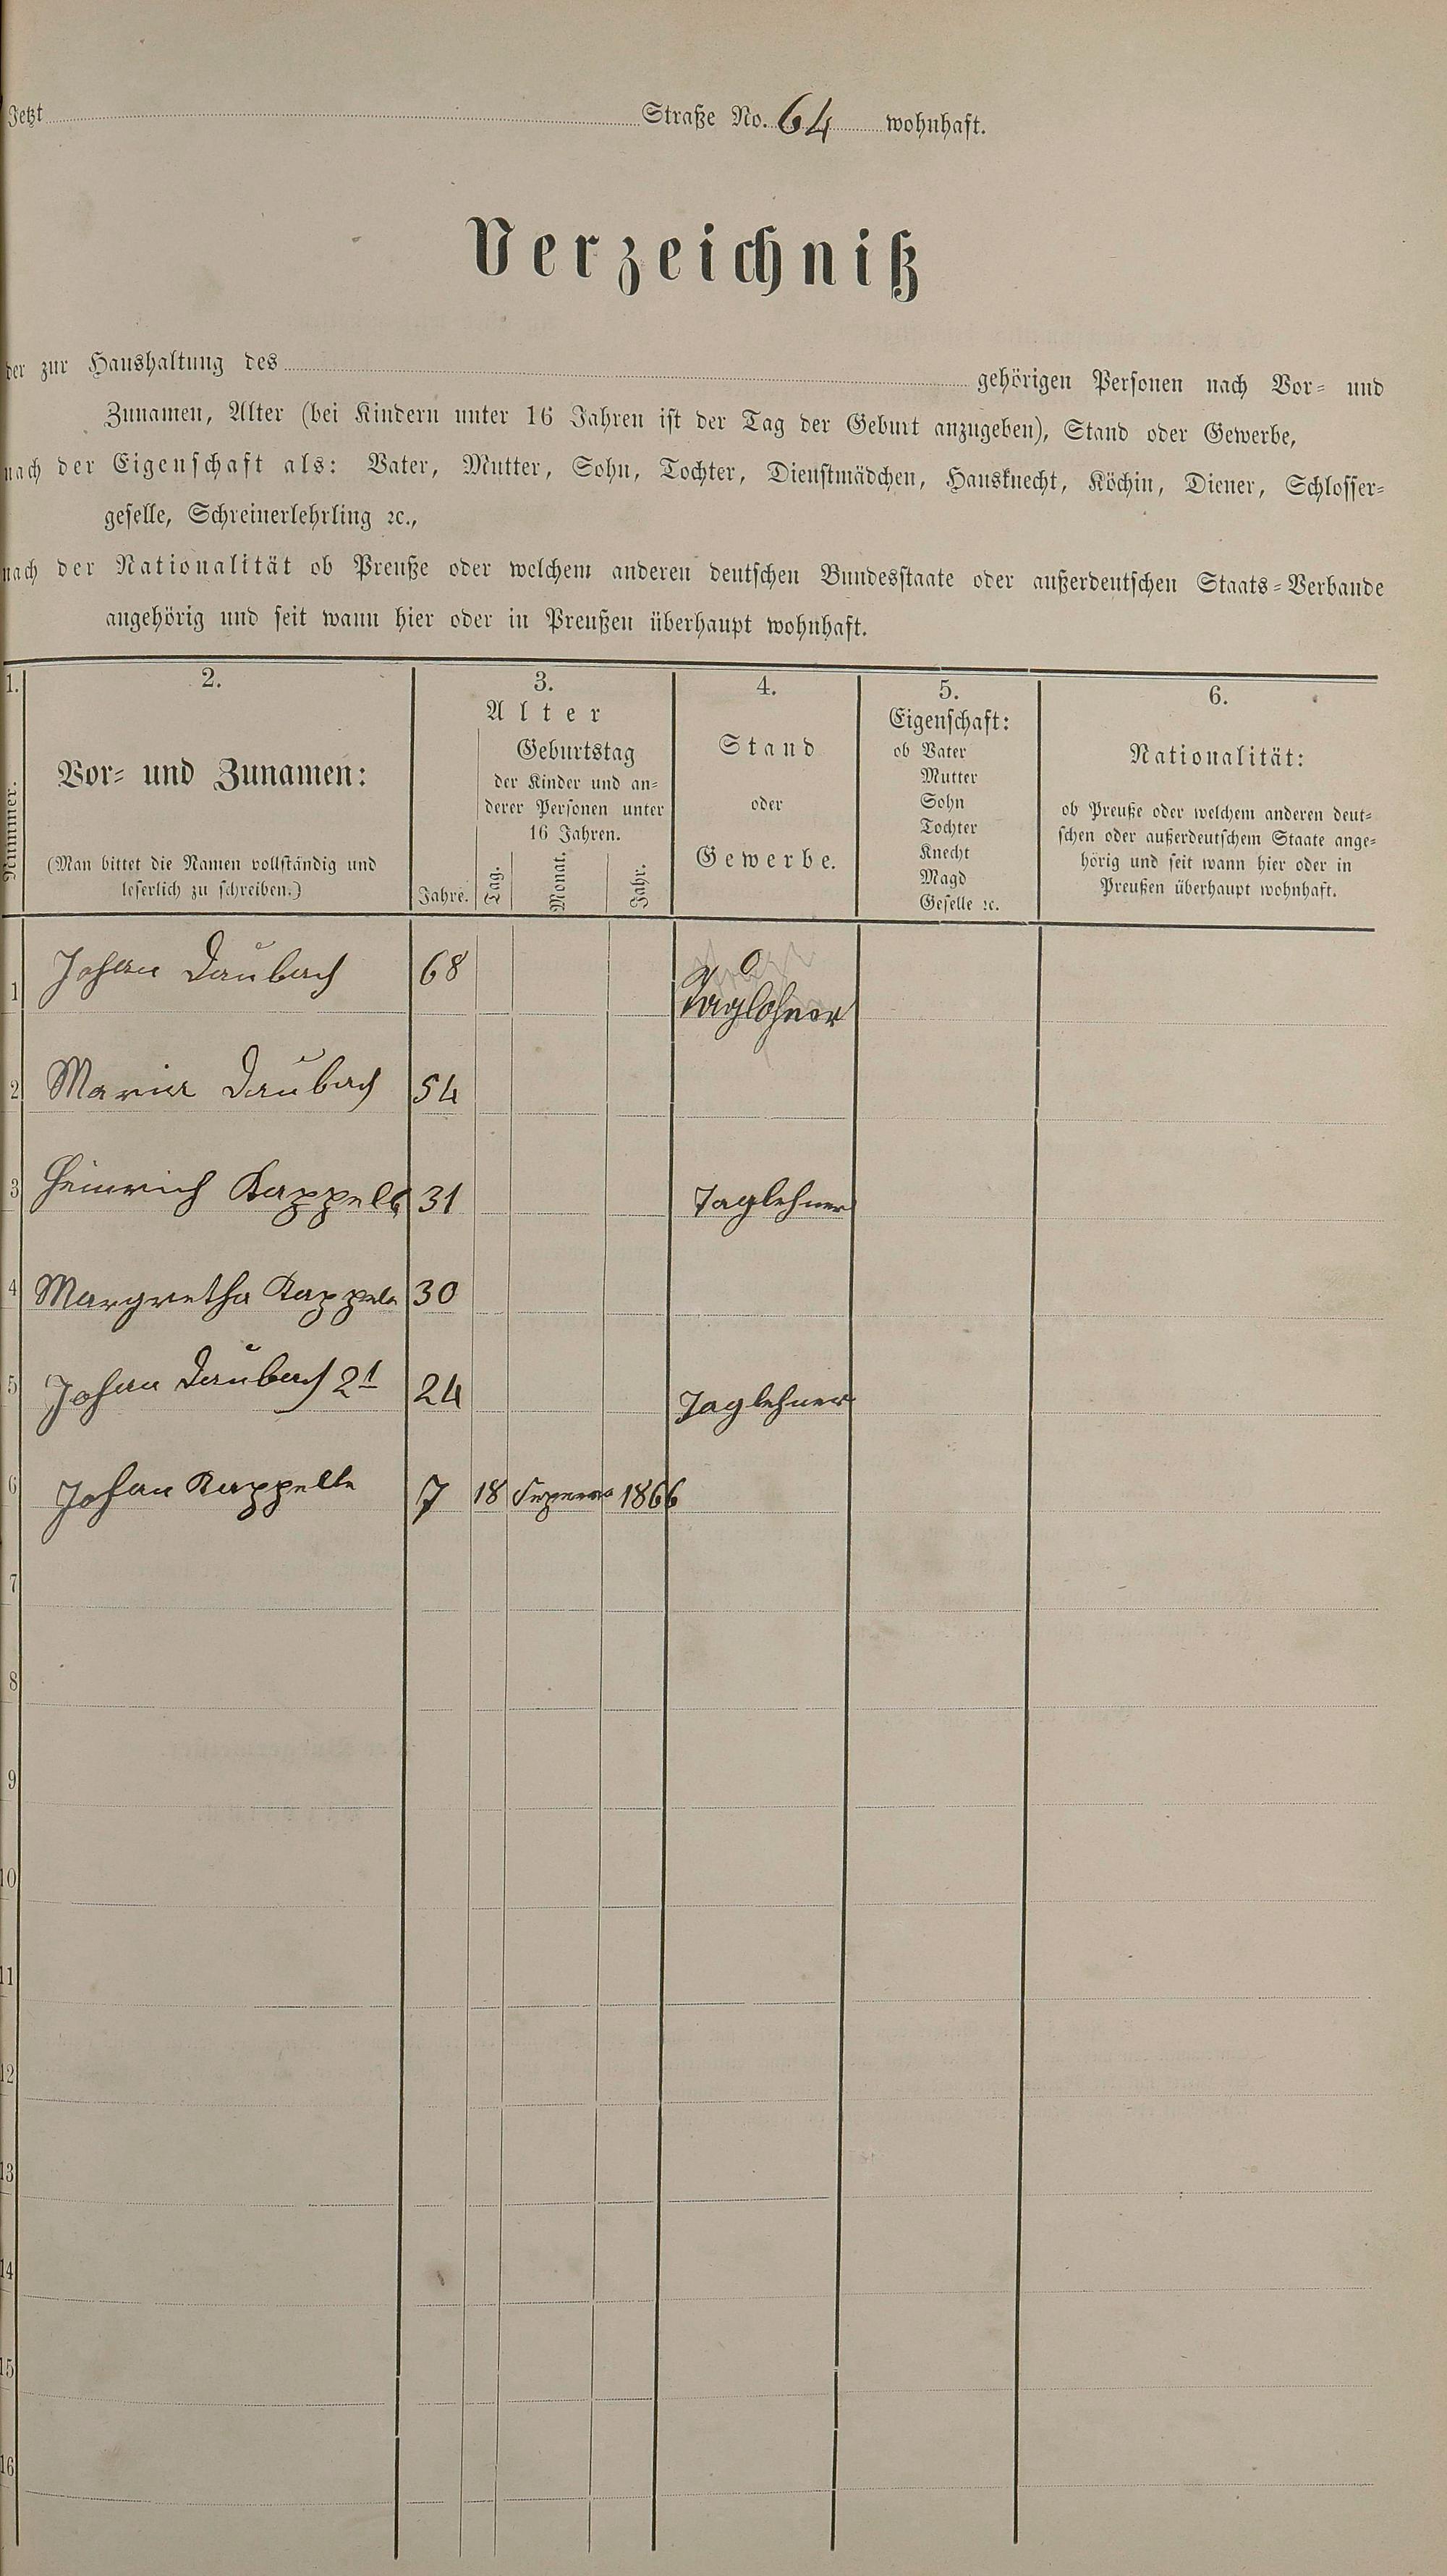 Jetzt Straße No. 64 wohnhaft.
Verzeichniß
der zur Haushaltung des gehörigen Personen nach Vor- und
Zunamen, Alter (bei Kindern unter 16 Jahren ist der Tag der Geburt anzugeben), Stand oder Gewerbe,
nach der Eigenschaft als: Vater, Mutter, Sohn, Tochter, Dienstmädchen, Hausknecht, Köchin, Diener, Schlosser-
geselle, Schreinerlehrling ꝛc.,
nach der Nationalität ob Preuße oder welchem anderen deutschen Bundesstaate oder außerdeutschen Staats-Verbande
angehörig und seit wann hier oder in Preußen überhaupt wohnhaft.
1.
Nummer.
2.
Vor- und Zunamen:
(Man bittet die Namen vollständig und
leserlich zu schreiben.)
3.
Alter
Jahre.
Geburtstag
der Kinder und an-
derer Personen unter
16 Jahren.
Tag. Monat. Jahr.
4.
Stand
oder
Gewerbe.
5.
Eigenschaft:
ob Vater
Mutter
Sohn
Tochter
Knecht
Magd
Geselle ꝛc.
6.
Nationalität:
ob Preuße oder welchem anderen deut-
schen oder außerdeutschem Staate ange-
hörig und seit wann hier oder in
Preußen überhaupt wohnhaft.
1 Johan Daubach 68 Taglohner
2 Maria Daubach 54
3 Heinrich Kappele 31 Taglehner
4 Margretha Kappele 30
5 Johan Daubach 2t 24 Taglehner
6 Johan Kappelle 7 18 1866
7
8
9
10
11
12
13
14
15
16